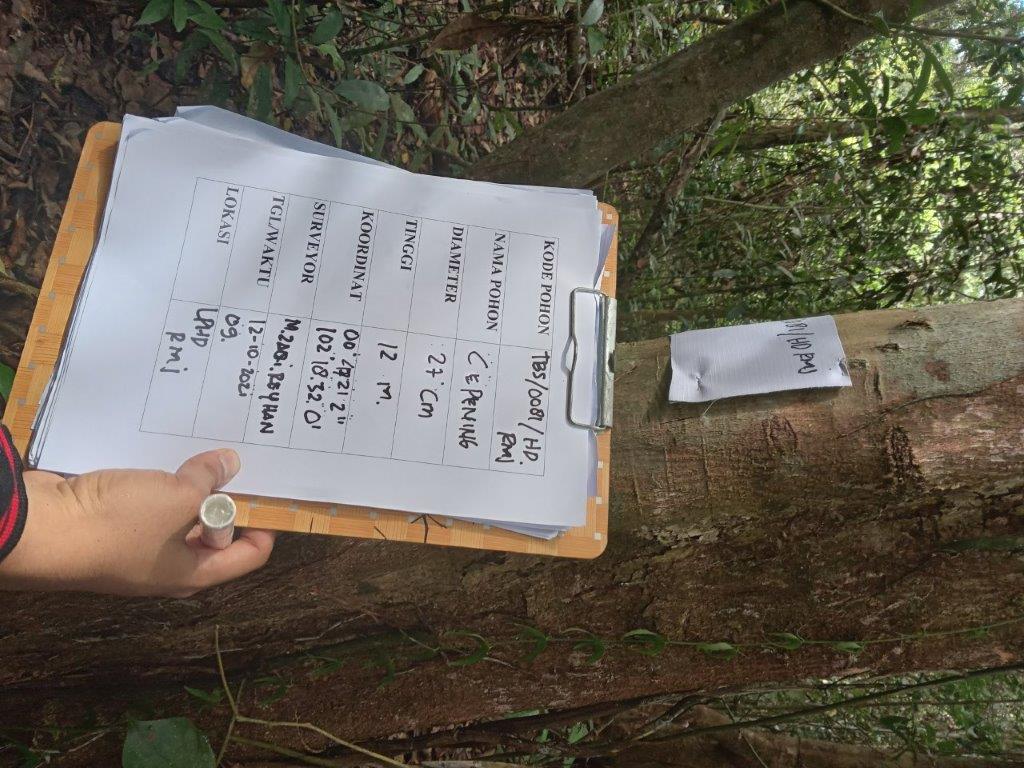 181/HD RMJ
KODE POHON TBS/0081/HD.
RMJ
NAMA POHON CEPENING
DIAMETER 27 cm
TINGGI 12 M.
KOORDINAT
102°18.32.0'
SURVEYOR M.ZAKI.REYHAN
TGL/WAKTU 12-10-2021
09.
LOKASI LPHD
RMJ